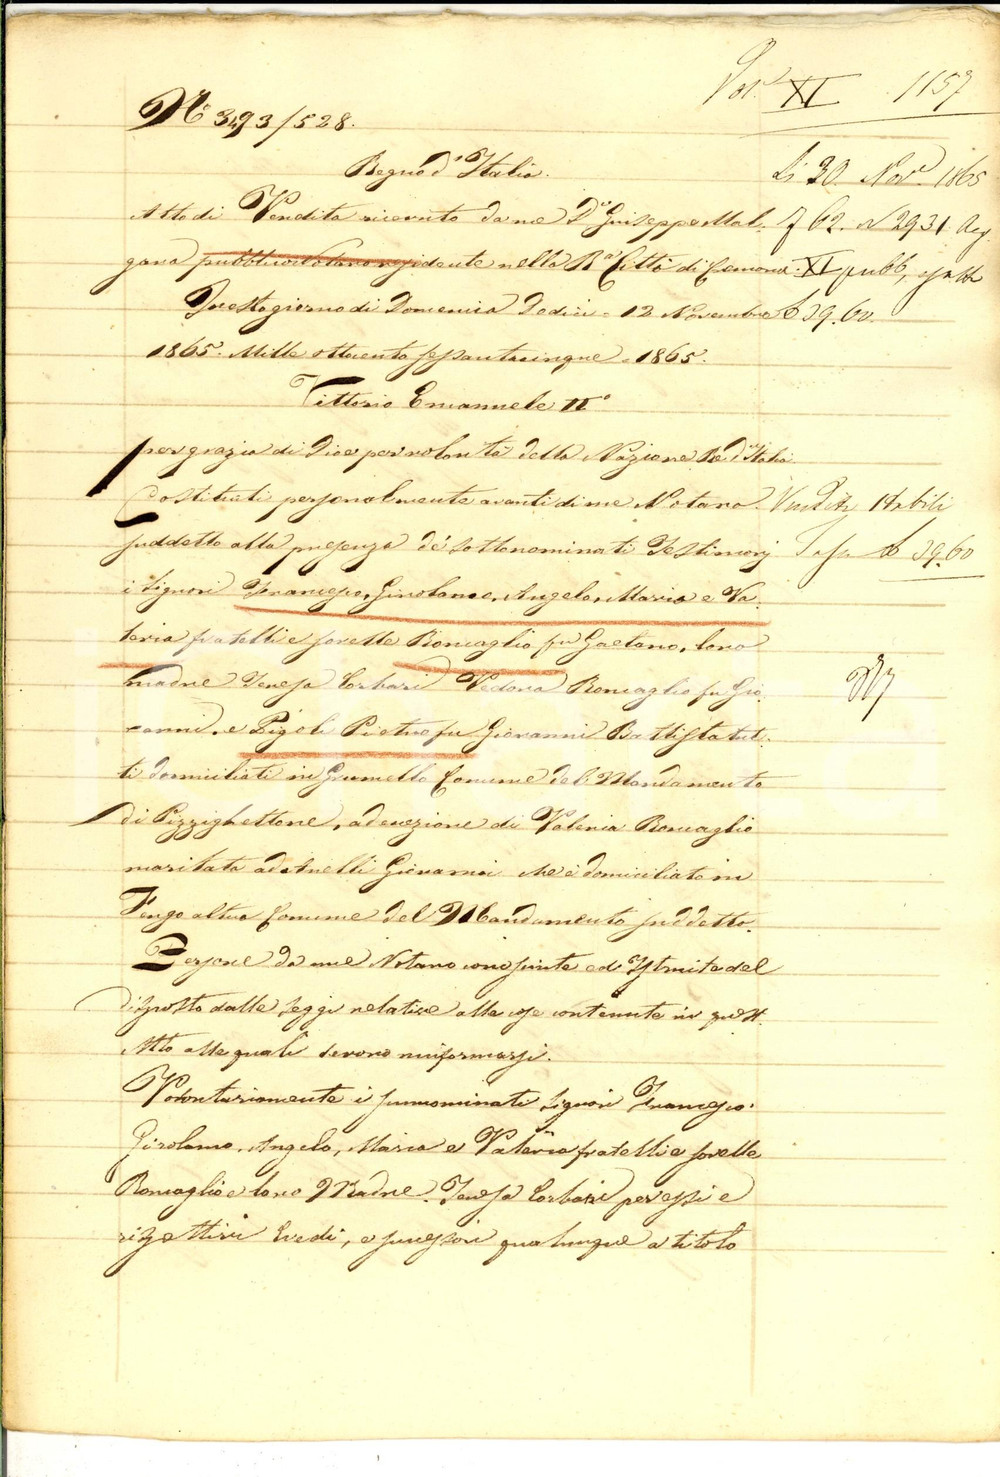 Vol. XI 1157
N.° 3493/528.
Regno d'Italia.
Li 30. Nov.e 1865
Atto di Vendita ricevuto da me D.r Giuseppe Mal-
f 62. N 2931. Reg.
gana pubblico Notaro residente nella R.a Città di Cremona.
XI pubb,
Questo giorno di Domenica Dodici = 12 Novembre
£ 39.60.
1865. Mille ottocento sessantacinque = 1865.
Vittorio Emanuele II°
per grazia di Dio e per volontà della Nazione Re d'Italia
Costituiti personalmente avanti di me Notaro
Vendita Stabili
suddetto alla presenza de' sottonominati Testimonj
Tassa £ 39.60
i Signori Francesco, Girolamo, Angelo, Maria e Va-
leria fratelli e sorelle Roncaglio fu Gaetano, loro
madre Teresa Corbari Vedova Roncaglio fu Gio-
vanni, e Pigoli Pietro fu Giovanni Battista tut-
ti domiciliati in Grumello Comune del Mandamento
di Pizzighettone, ad eccezione di Valeria Roncaglio
maritata ad Giovanni che è domiciliata in
Fengo altro Comune del Mandamento suddetto.
Persone da me Notaro conosciute ed istruite del
disposto dalle leggi relative alle cose contenute in quest'
Atto alle quali devono uniformarsi.
Volontariamente i sunnominati Signori Francesco
Girolamo, Angelo, Maria e Valeria fratelli e sorelle
Roncaglio e loro Madre Teresa Corbari per essi e
rispettivi Eredi, e successori qualunque a titolo